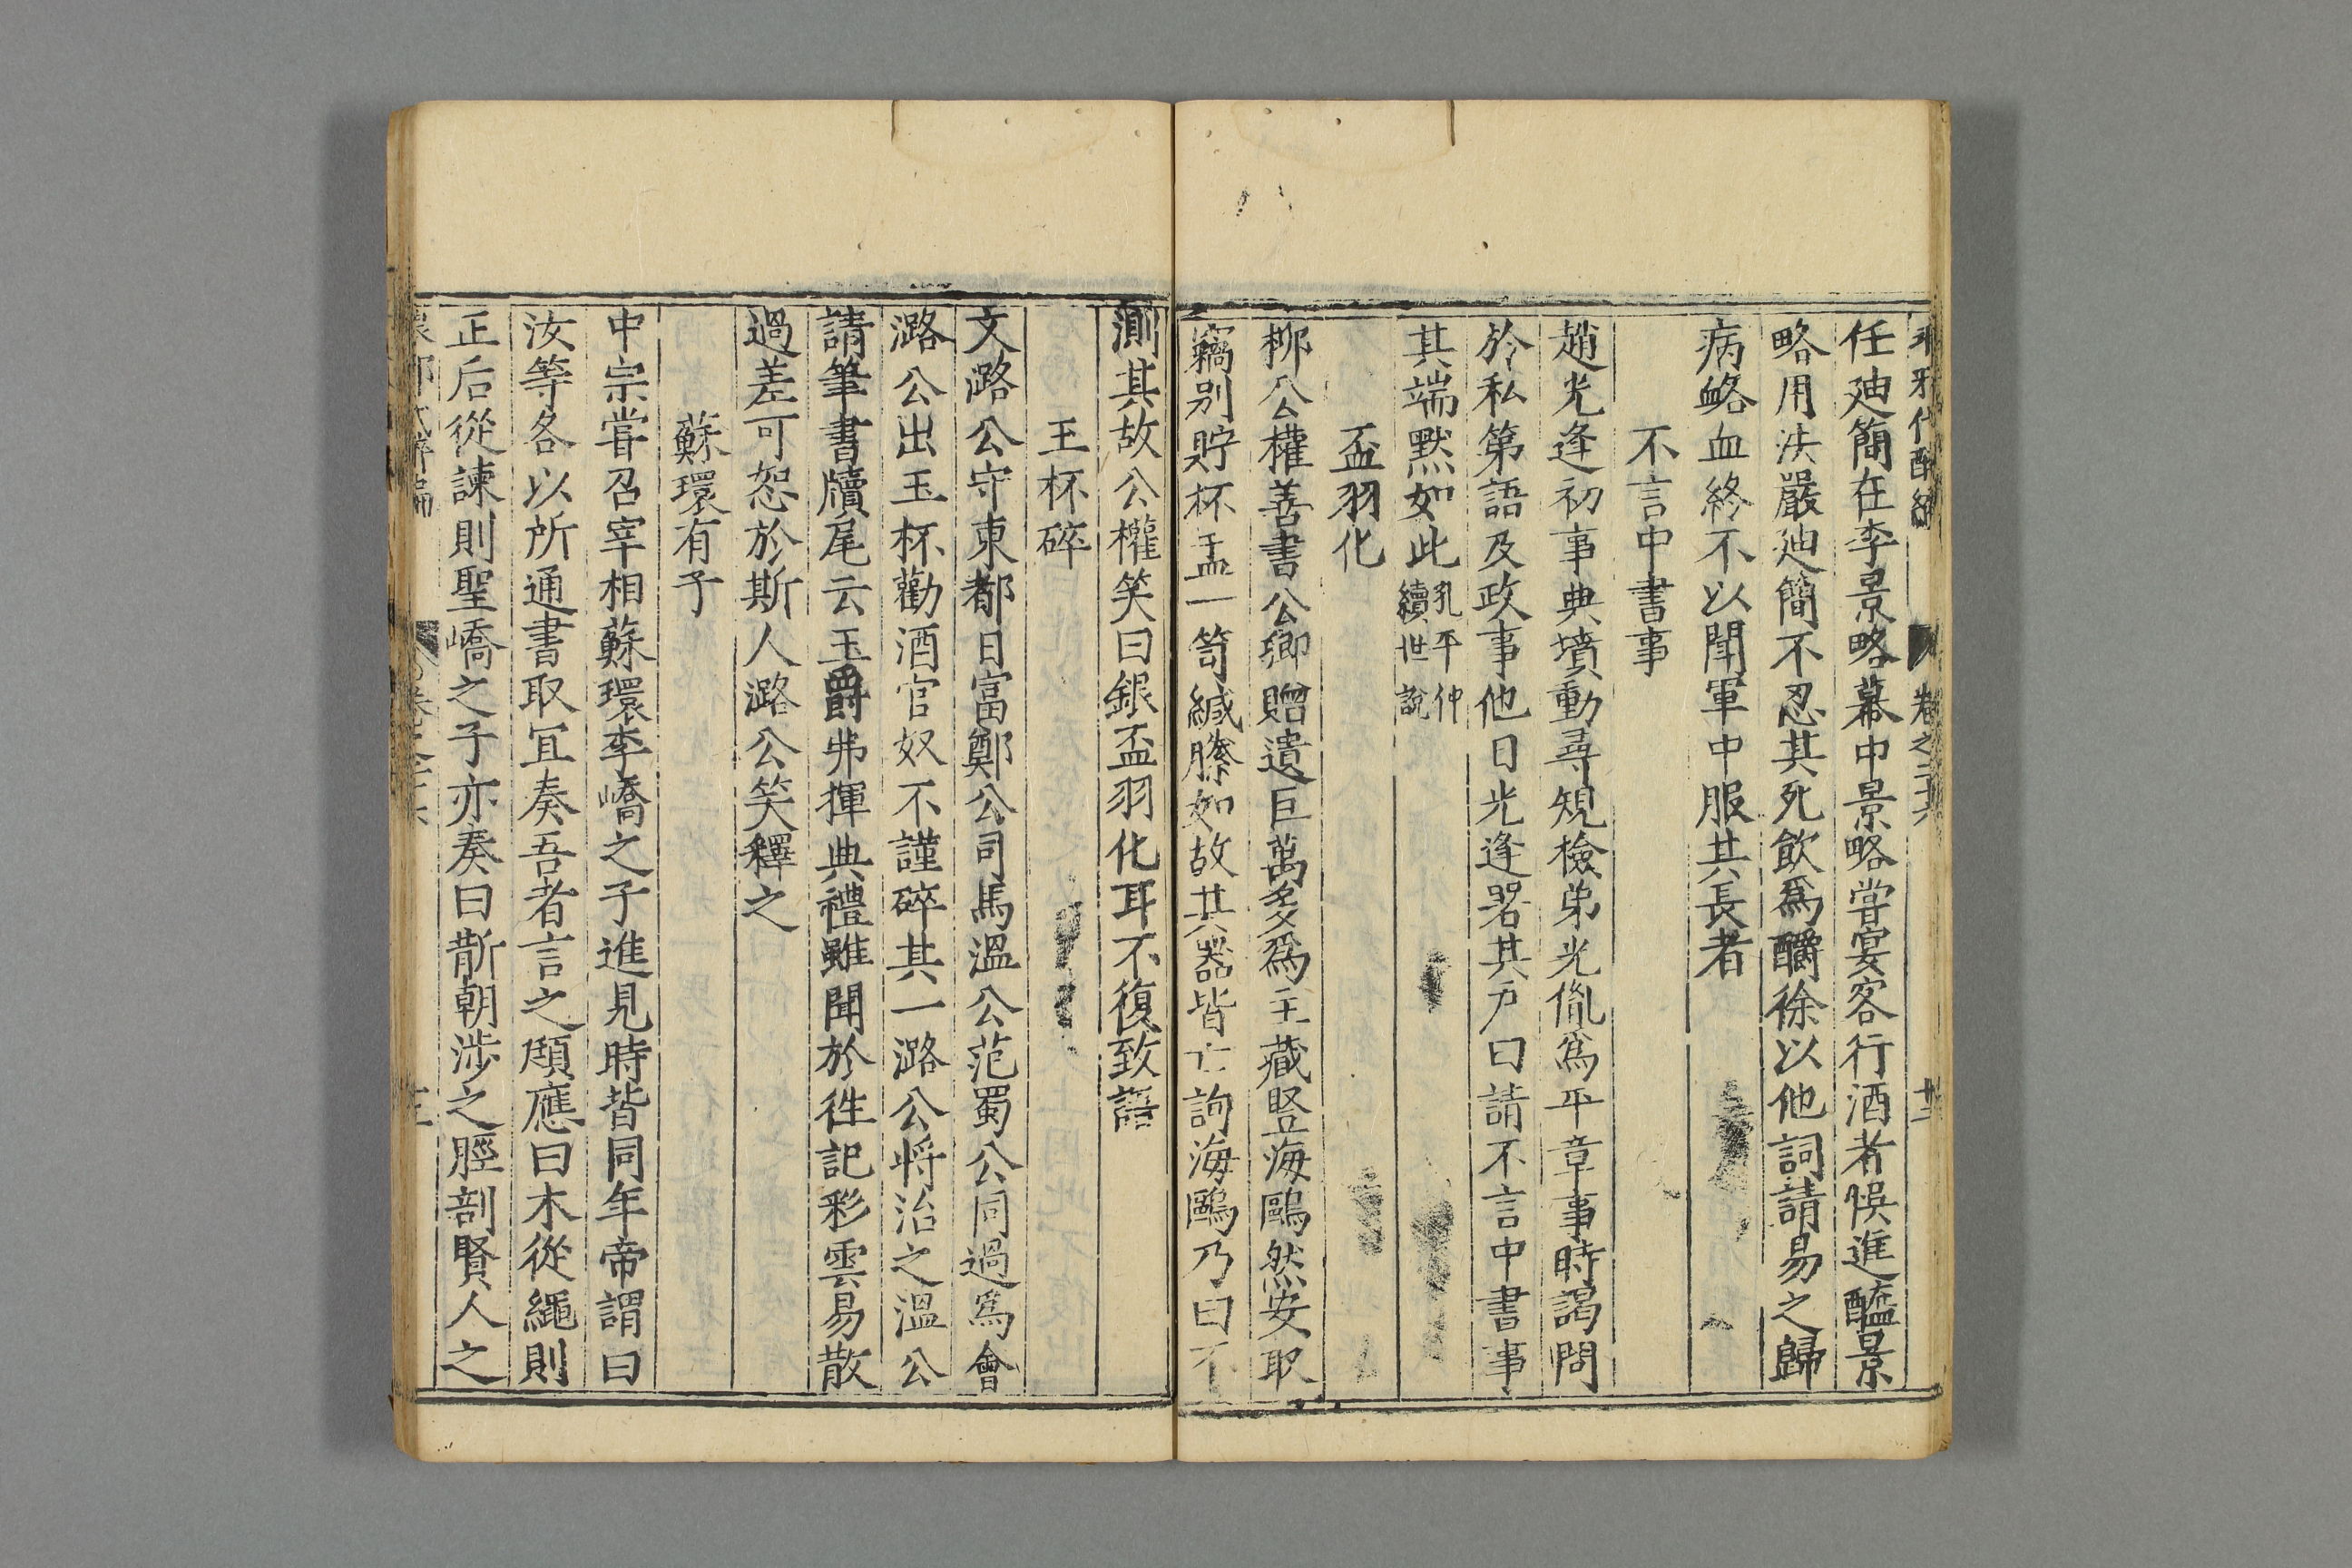 卷之二十六
任廸簡在李景略幕中景略嘗宴客行酒者悞進醯景
略用法嚴廸簡不忍其死飲爲釂徐以他詞請易之歸
病衂血終不以聞軍中服其長者
不言中書事
趙光逢初事典墳動尋規檢弟光㣧爲平章事時謁問
於私第語及政事他日光逢署其戶曰請不言中書事
其端黙如此孔平仲續世說
盃羽化
柳公權善書公卿贈遺巨萬多爲主藏竪海鷗然安取
竊别貯杯盂一笥緘縢如故其器皆亡詢海鷗乃曰不
測其故公權笑曰銀盃羽化耳不復致語
玉杯碎
文潞公守東都日富鄭公司馬溫公范蜀公同過爲會
潞公出玉杯勸酒官奴不謹碎其一潞公將治之溫公
請筆書牘尾云玉爵弗揮典禮雖聞於徃記彩雲易散
過差可恕於斯人潞公笑釋之
蘇環有子
中宗甞召宰相蘇環李嶠之子進見時皆同年帝謂曰
汝等各以所通書取冝奏吾者言之頲應曰木從繩則
正后從諫則聖嶠之子亦奏曰斮朝涉之脛剖賢人之